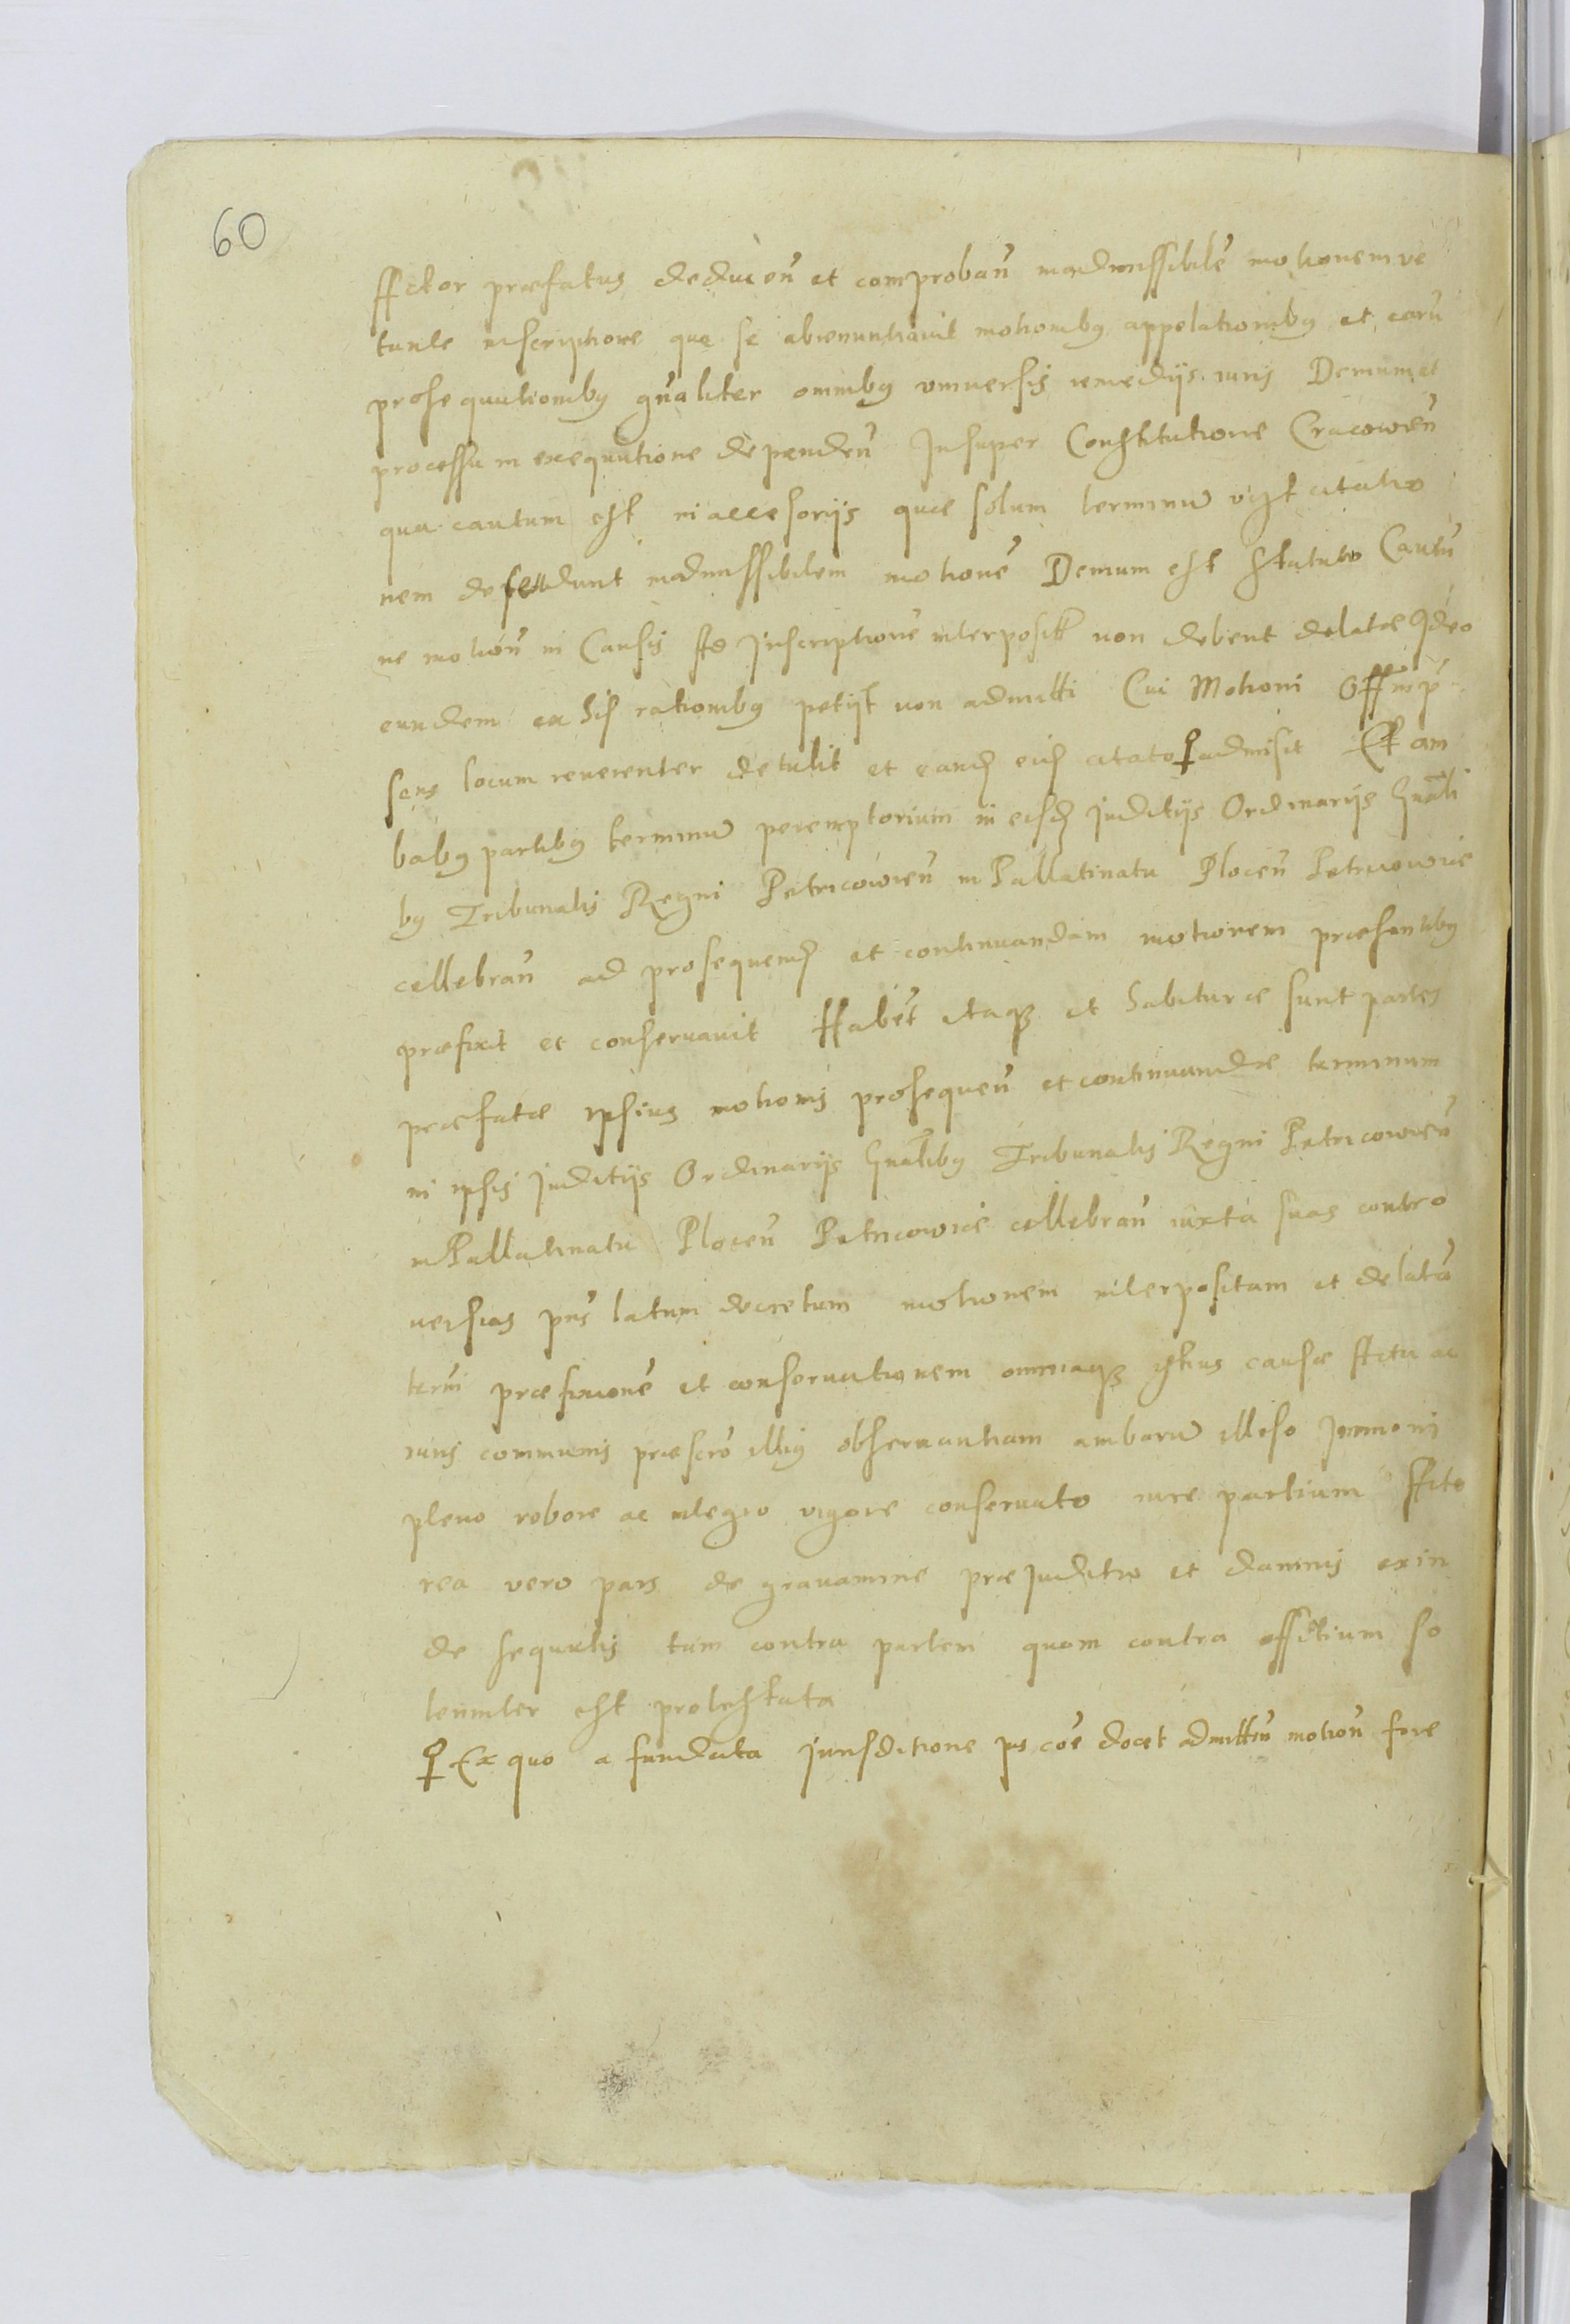 60
Actor præfatus deducen̄ et comproban̄ inadmissibilē motionem ve
tante inscriptione qua se abrenuntiavit motionibꝫ appelationibꝫ et earū
prosequutionibꝫ gn̄aliter omnibꝫ universis remedijs iuris Demum et
processu in exequutione dependen̄ Insuper Constitutione Cracovien̄
qua cautum est in accesorijs quæ solum terminū citatio
nem defendunt inadmissibilem motionē Demum est statuto Cautū
ne motion̄ in Causis Inscriptionē interposit non debent delatæ Ideo
eundem ex his rationibꝫ petijt non admitti Cui Motioni Off
sens locum reverenter detulit et eand eid citato admisit Et am
babꝫ partibꝫ terminū peremptorium in eisd Juditijs Ordinarijs Gnāli
bꝫ Tribunalis Regni Petricovien̄ in Pallatinatu Plocen̄ Petricoviæ
cellebran̄ ad prosequend et continuandam motionem præsentibꝫ
præfixit et conservavit Habēt itaqꝫ et habituræ sunt partes
præfatæ ipsius motionis prosequen̄ et continuandæ terminum
in ipsis Juditijs Ordinarijs Gnālibꝫ Tribunalis Regni Petricovien̄
in Pallatinatu Plocen̄ Petricoviæ cellebran̄ iuxta suas contro
versias pn̄s latum decretum motionem interpositam et delatā
termī præfixionē et conservationem omniaqꝫ istius causæ acta ac
iuris communis præscrō illiꝫ observantiam ambarū illeso Jnmoni
pleno robore ac integro vigore conservato iure partium Acto
rea vero pars de gravamine præjuditio et damnis exin
de sequutis tam contra partem quam contra offitium so
lenniter est protestata
Ex quo a fundata Jurisditione ius cōe docet admitten̄ motion̄ fore